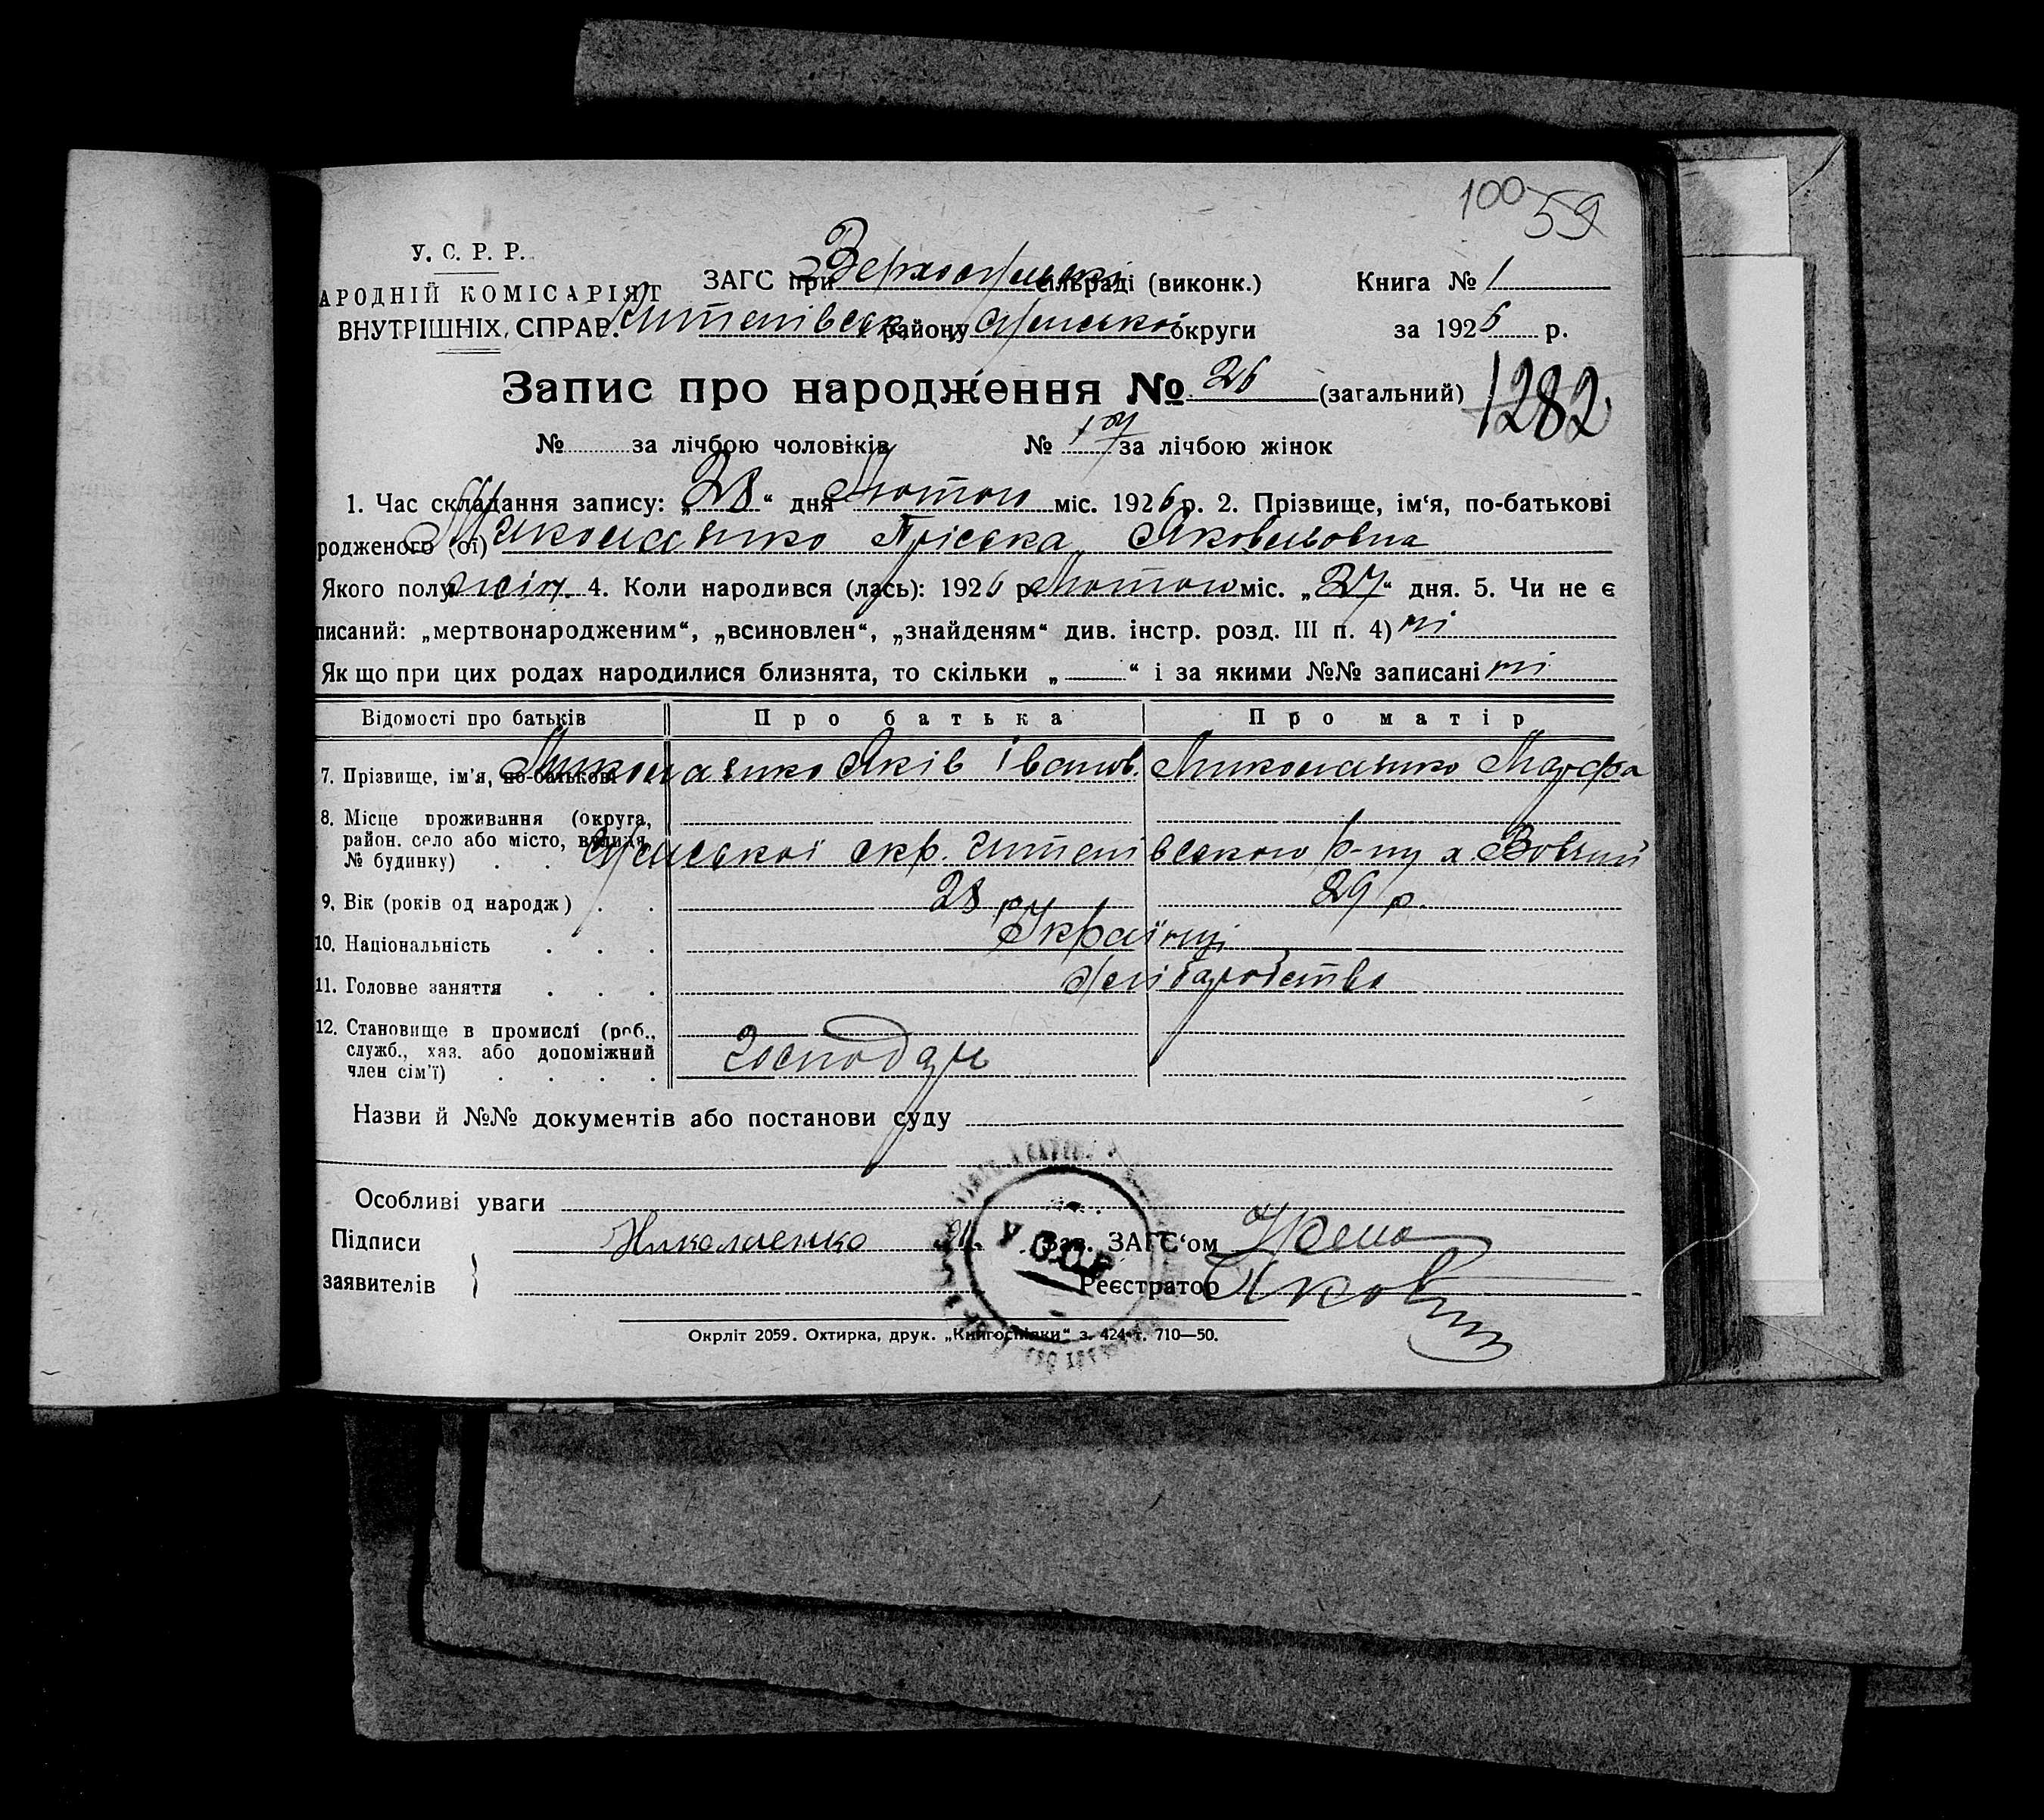 100 59
У. С. Р. Р.
АРОДНІЙ КОМІСАРІЯТ
ВНУТРІШНІХ СПРАВ.
ЗАГС при сільраді (виконк.)
району Сумської округи
Книга № 1
за 1926 р.
Запис про народження № 26 (загальний)
1282
№ за лічбою чоловіків № 17 за лічбою жінок
1. Час складання запису: „28“ дня Лютого міс. 1926 р. 2. Прізвище, ім‘я, по-батькові
родженого (ої) Миколаенко Пріська Яковлівна
Якого полу жін. 4. Коли народився (лась): 1926 р. Лютого міс. „27“ дня. 5. Чи не є
писаний: „мертвонародженим“, „всиновлен“, „знайденям“ див. інстр. розд. III п. 4) ні
Як що при цих родах народилися близнята, то скільки „ “ і за якими №№ записані ні
Відомості про батьків Про батька Про матір
7. Прізвище, ім'я, по-батькові Миколаенко Яків Іванов. Миколаенко Марфа
8. Місце проживання (округа,
район. село або місто, вулиця,
№ будинку) . . Сумської окр. р-ну х.
9. Вік (років од народж) . . 28 р. 29 р.
10. Національність . . . Українці
11. Головне заняття . . . Хліборобство
12. Становище в промислі (роб.,
служб., хаз. або допоміжний
член сім'ї) . . . . Господарь
Назви й №№ документів або постанови суду
Особливі уваги
Підписи Николаенко Зав. ЗАГС‘ом
заявителів } Реєстратор
У С С Р
Окрліт 2059. Охтирка, друк. „Книгоспілки“ з. 424 т. 710—50.